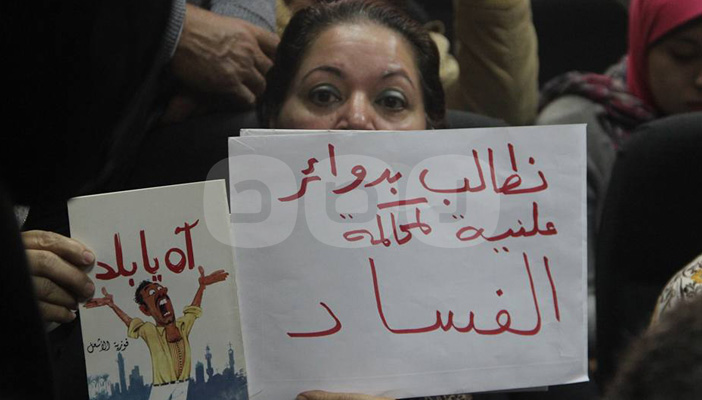 نطالب بدوائر
علنية لمحاكمة
الفساد
آه يا بلد
فوزية الأشعل